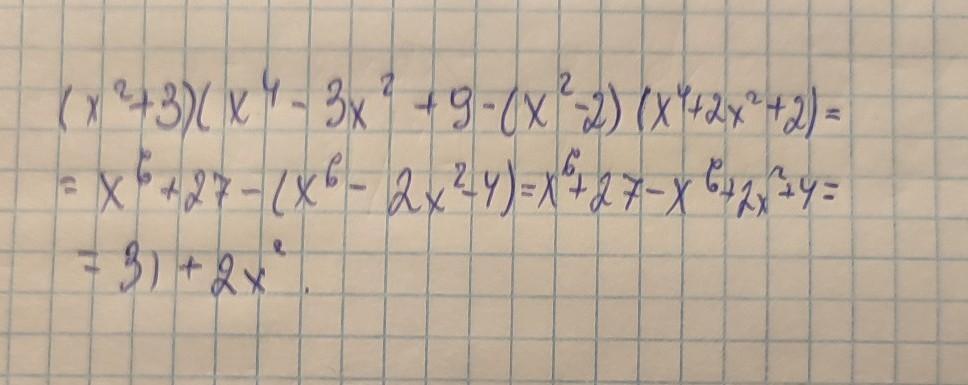 (x²+3)(x⁴-3x²+9-(x²-2)(x⁴+2x²+2)=
=x⁶+27-(x⁶-2x²-4)=x⁶+27-x⁶+2x²+4=
=31+2x².